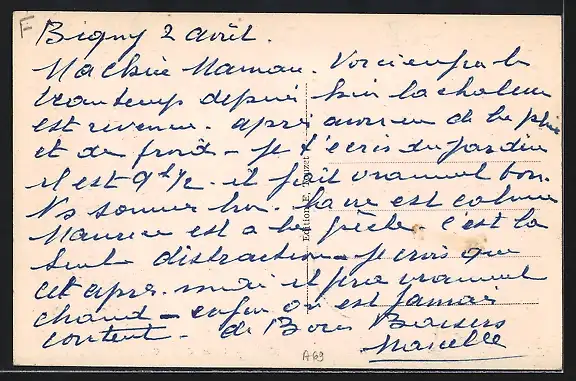 F
Bigny 2 Août.
Ma chère Maman. Voici enfin le
beau temps depuis hier la chaleur
est revenue. après avoir eu de la pluie
et du froid - je t'ecris du jardin
il est 9h 1/2. il fait vraiment bon.
Ns sommes la vie est calme
Maurice est a la pêche. c'est la
seule distraction - je crois que
cet après-midi il fera vraiment
chaud - enfin on est jamais
content. de Bons Baisers
Marcelle
Edition E.
A69